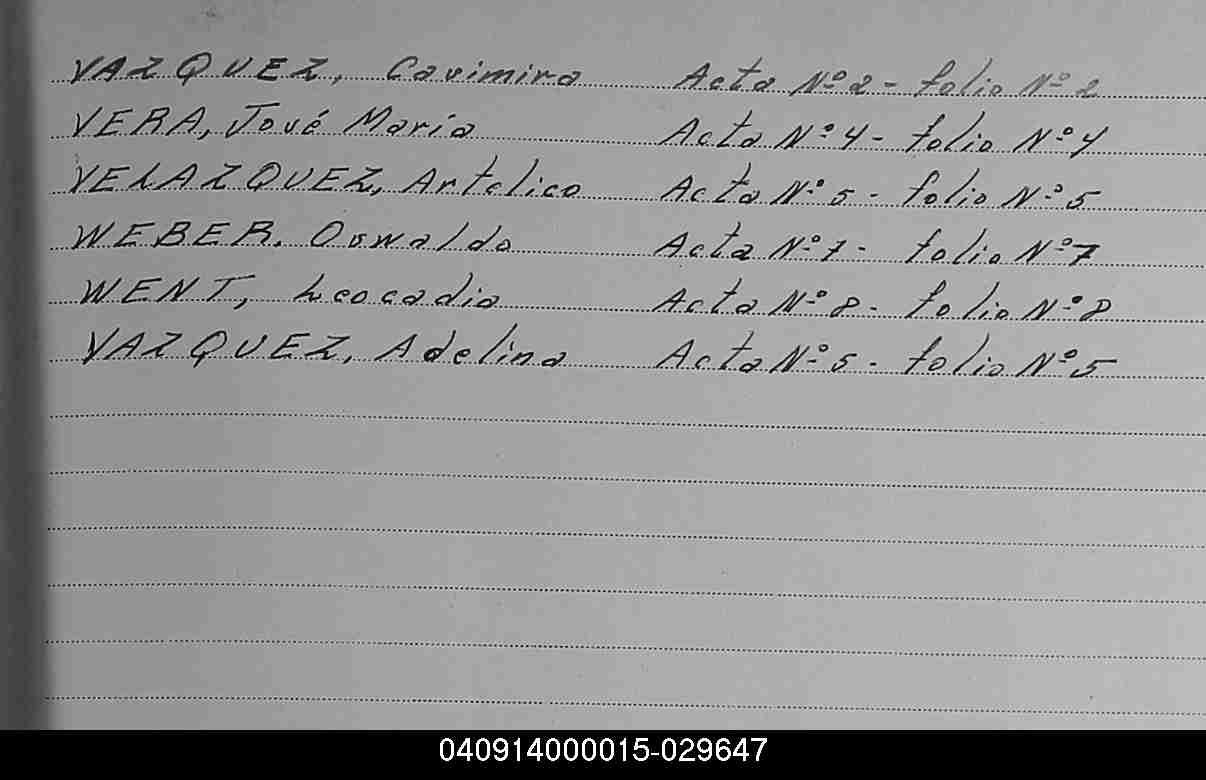 VAZQUEZ, Casimira Acta Nº 2 - folio Nº 2
VERA, José María Acta Nº 4 - folio Nº 4
VELAZQUEZ, Artelico Acta Nº 5 - folio Nº 5
WEBER, Oswaldo Acta Nº 7 - folio Nº 7
WENT, Leocadio Acta Nº 8 - folio Nº 8
VAZQUEZ, Adelina Acta Nº 5 - folio Nº 5
040914000015-029647